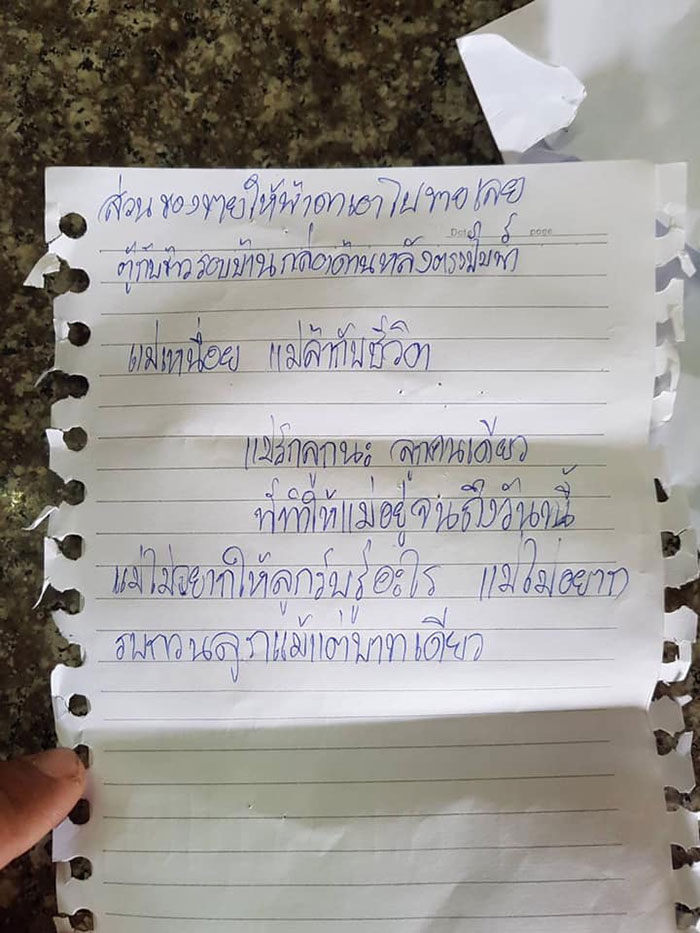 ส่วนของขายให้น้าตาเอาไปขายเลย
ตู้กับข้าวรอบบ้านกล่องด้านหลังตรงปั๊มน้ำ
แม่เหนื่อย แม่ล้ากับชีวิต
แม่รักลูกนะ ลูกคนเดียว
ที่ทำให้แม่อยู่จนถึงวันนี้
แม่ไม่อยากให้ลูกรับรู้อะไร แม่ไม่อยาก
รบกวนลูกแม้แต่บาทเดียว